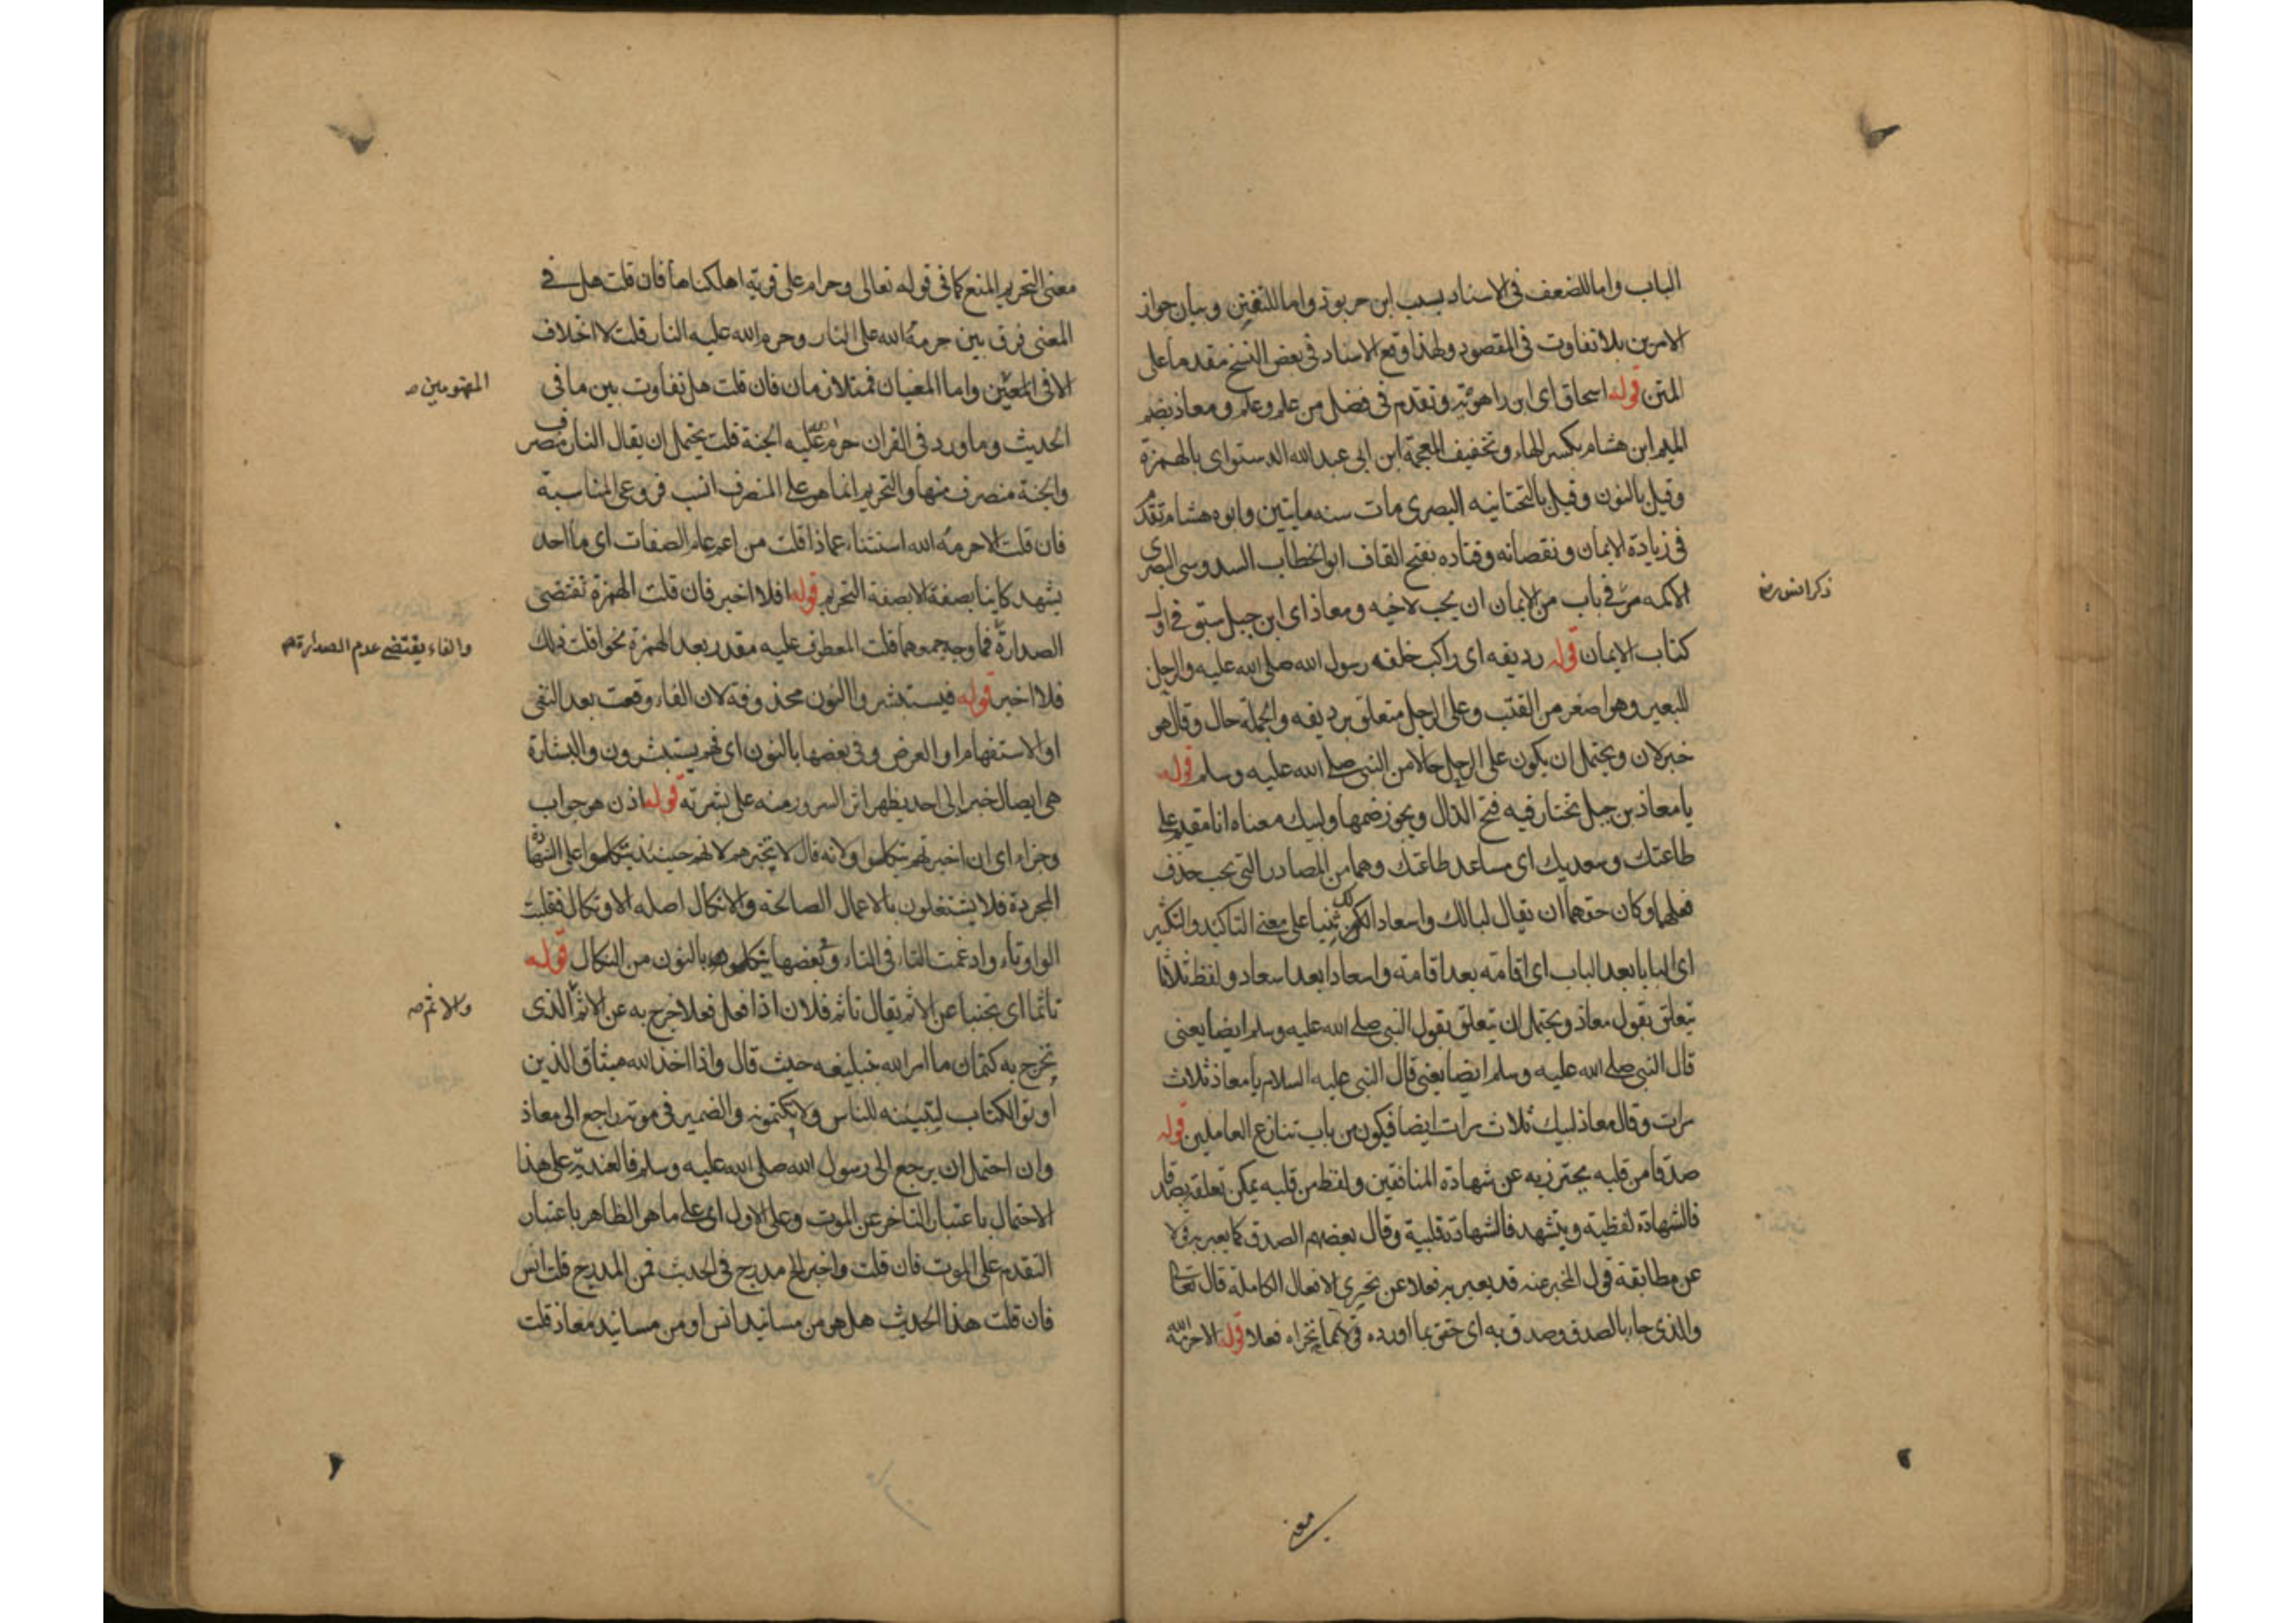 الباب واما للضعف فى الاسناد بسبب ابن خربوذ واما للتفنن وبيان جواز
الامرين بلا تفاوت فى المقصود ولهذا وقع الاسناد فى بعض النسخ مقدما على
المتن قوله اسحاق اى ابن راهويه وتقدم فى فضل من علم وعلم ومعاذ بضم
الميم ابن هشام بكسر الهاء وتخفيف المعجمة ابن ابى عبد الله الدستواى بالهمزة
وقيل بالنون وقيل بالتحتانيه البصرى مات سنه مايتين وابوه هشام تقدم
فى زيادة الايمان ونقصانه وقتاده بفتح القاف ابو الخطاب السدوسى البصرى
الاكمه مر فى باب من الايمان ان يحب لاخيه ومعاذ اى ابن جبل سبق فى اول
ذكر انس رض
كتاب الايمان قوله رديفه اى راكب خلفه رسول الله صلى الله عليه والرحل
للبعير وهو اصغر من القتب وعلى الرحل متعلق برديفه والجملة حال وقال هو
خبر لان ويحتمل ان يكون على الرحل حالا من النبى صلى الله عليه وسلم قوله
يا معاذ بن جبل تختار فيه فتح الدال ويجوز ضمها ولبيك معناه انا مقيم على
طاعتك وسعديك اى مساعد طاعتك وهما من المصادر التى يجب حذف
فعلهما وكان حقهما ان يقال لبالك واسعادا لك لكن ثنيا على معنى التاكيد والتكثير
اى البابا بعد الباب اى اقامته بعد اقامته واسعادا بعد اسعاد ولفظ ثلاثا
يتعلق بقول معاذ ويحتمل ان يتعلق بقول النبى صلى الله عليه وسلم ايضا يعنى
قال النبى صلى الله عليه وسلم ايضا يعنى قال النبى عليه السلام يا معاذ ثلاث
مرات وقال معاذ لبيك ثلاث مرات ايضا فيكون من باب تنازع العاملين قوله
صدقا من قلبه يحترز به عن شهادة المنافقين ولفظ من قلبه يمكن تعلقه بصدقا
فالشهادة لفظية وبيشهد فالشهادة قلبية وقال بعضهم الصدق كما يعبر به قولا
عن مطابقة قول المخبر عنه قد يعبر به فعلا عن تحرى الافعال الكاملة قال تعالى
والذى جاء بالصدق وصدق به اى حقق ما اورده قولا بما تحراه فعلا قوله الا حرمه الله
معنى
معنى التحريم المنع كما فى قوله تعالى وحرام على قرية اهلكناها فان قلت هل فى
المعنى فرق بين حرمه الله على النار وحرم الله عليه النار قلت لا اختلاف
الا فى المفهومين واما المعنيان فمتلازمان فان قلت هل تفاوت بين ما فى
المفهومين
الحديث وما ورد فى القران حرم الله عليه الجنة قلت يحتمل ان يقال النار منصرف
والجنة منصرف منها والتحريم انما هو على المنصرف انسب فروعى المناسبة
فان قلت الا حرمه الله استثناء عماذا قلت من اعم عام الصفات اى ما احد
يشهد كاينا بصفة الا بصفة التحريم قوله افلا اخبر فان قلت الهمزة تقتضى
الصدارة فما وجه جمعهما قلت المعطوف عليه مقدر بعد الهمزة نحو اقلت ذلك
والفاء يقتضى عدم الصدارة
فلا اخبر قوله فيستبشروا النون محذوفة لان الفاء وقعت بعد النفى
او الاستفهام او العرض وفى بعضها بالنون اى فهم يستبشرون والبشارة
هى ايصال خبر الى احد يظهر اثر السرور منه على بشرته قوله اذن هو جواب
وجزاء اى ان اخبرتهم يتكلوا ولانه قال لا تخبرهم لانهم حينئذ يتكلوا على الشهادة
المجردة فلا يشتغلون بالاعمال الصالحة والاتكال اصله الاوتكال فقلبت
الواو تاء وادغمت التاء فى التاء وفى بعضها ينكلوا بالنون من النكال قوله
تاثما اى تجنبا عن الاثم يقال تاثم فلان اذا فعل فعلا خرج به عن الاثم الذى
والاثم
تخرج به كتمان ما امر الله بتبليغه حيث قال واذ اخذ الله ميثاق الذين
اوتوا الكتاب لتبيننه للناس ولا تكتمونه والضمير فى موته راجع الى معاذ
وان احتمل ان يرجع الى رسول الله صلى الله عليه وسلم فالعندية على هذا
الاحتمال باعتبار التاخر عن الموت وعلى الاول اى على ما هو الظاهر باعتبار
التقدم على الموت فان قلت واخبر الخ مدرج فى الحديث فمن المدرج قلت انس
فان قلت هذا الحديث هل هو من مسانيد انس او من مسانيد معاذ قلت